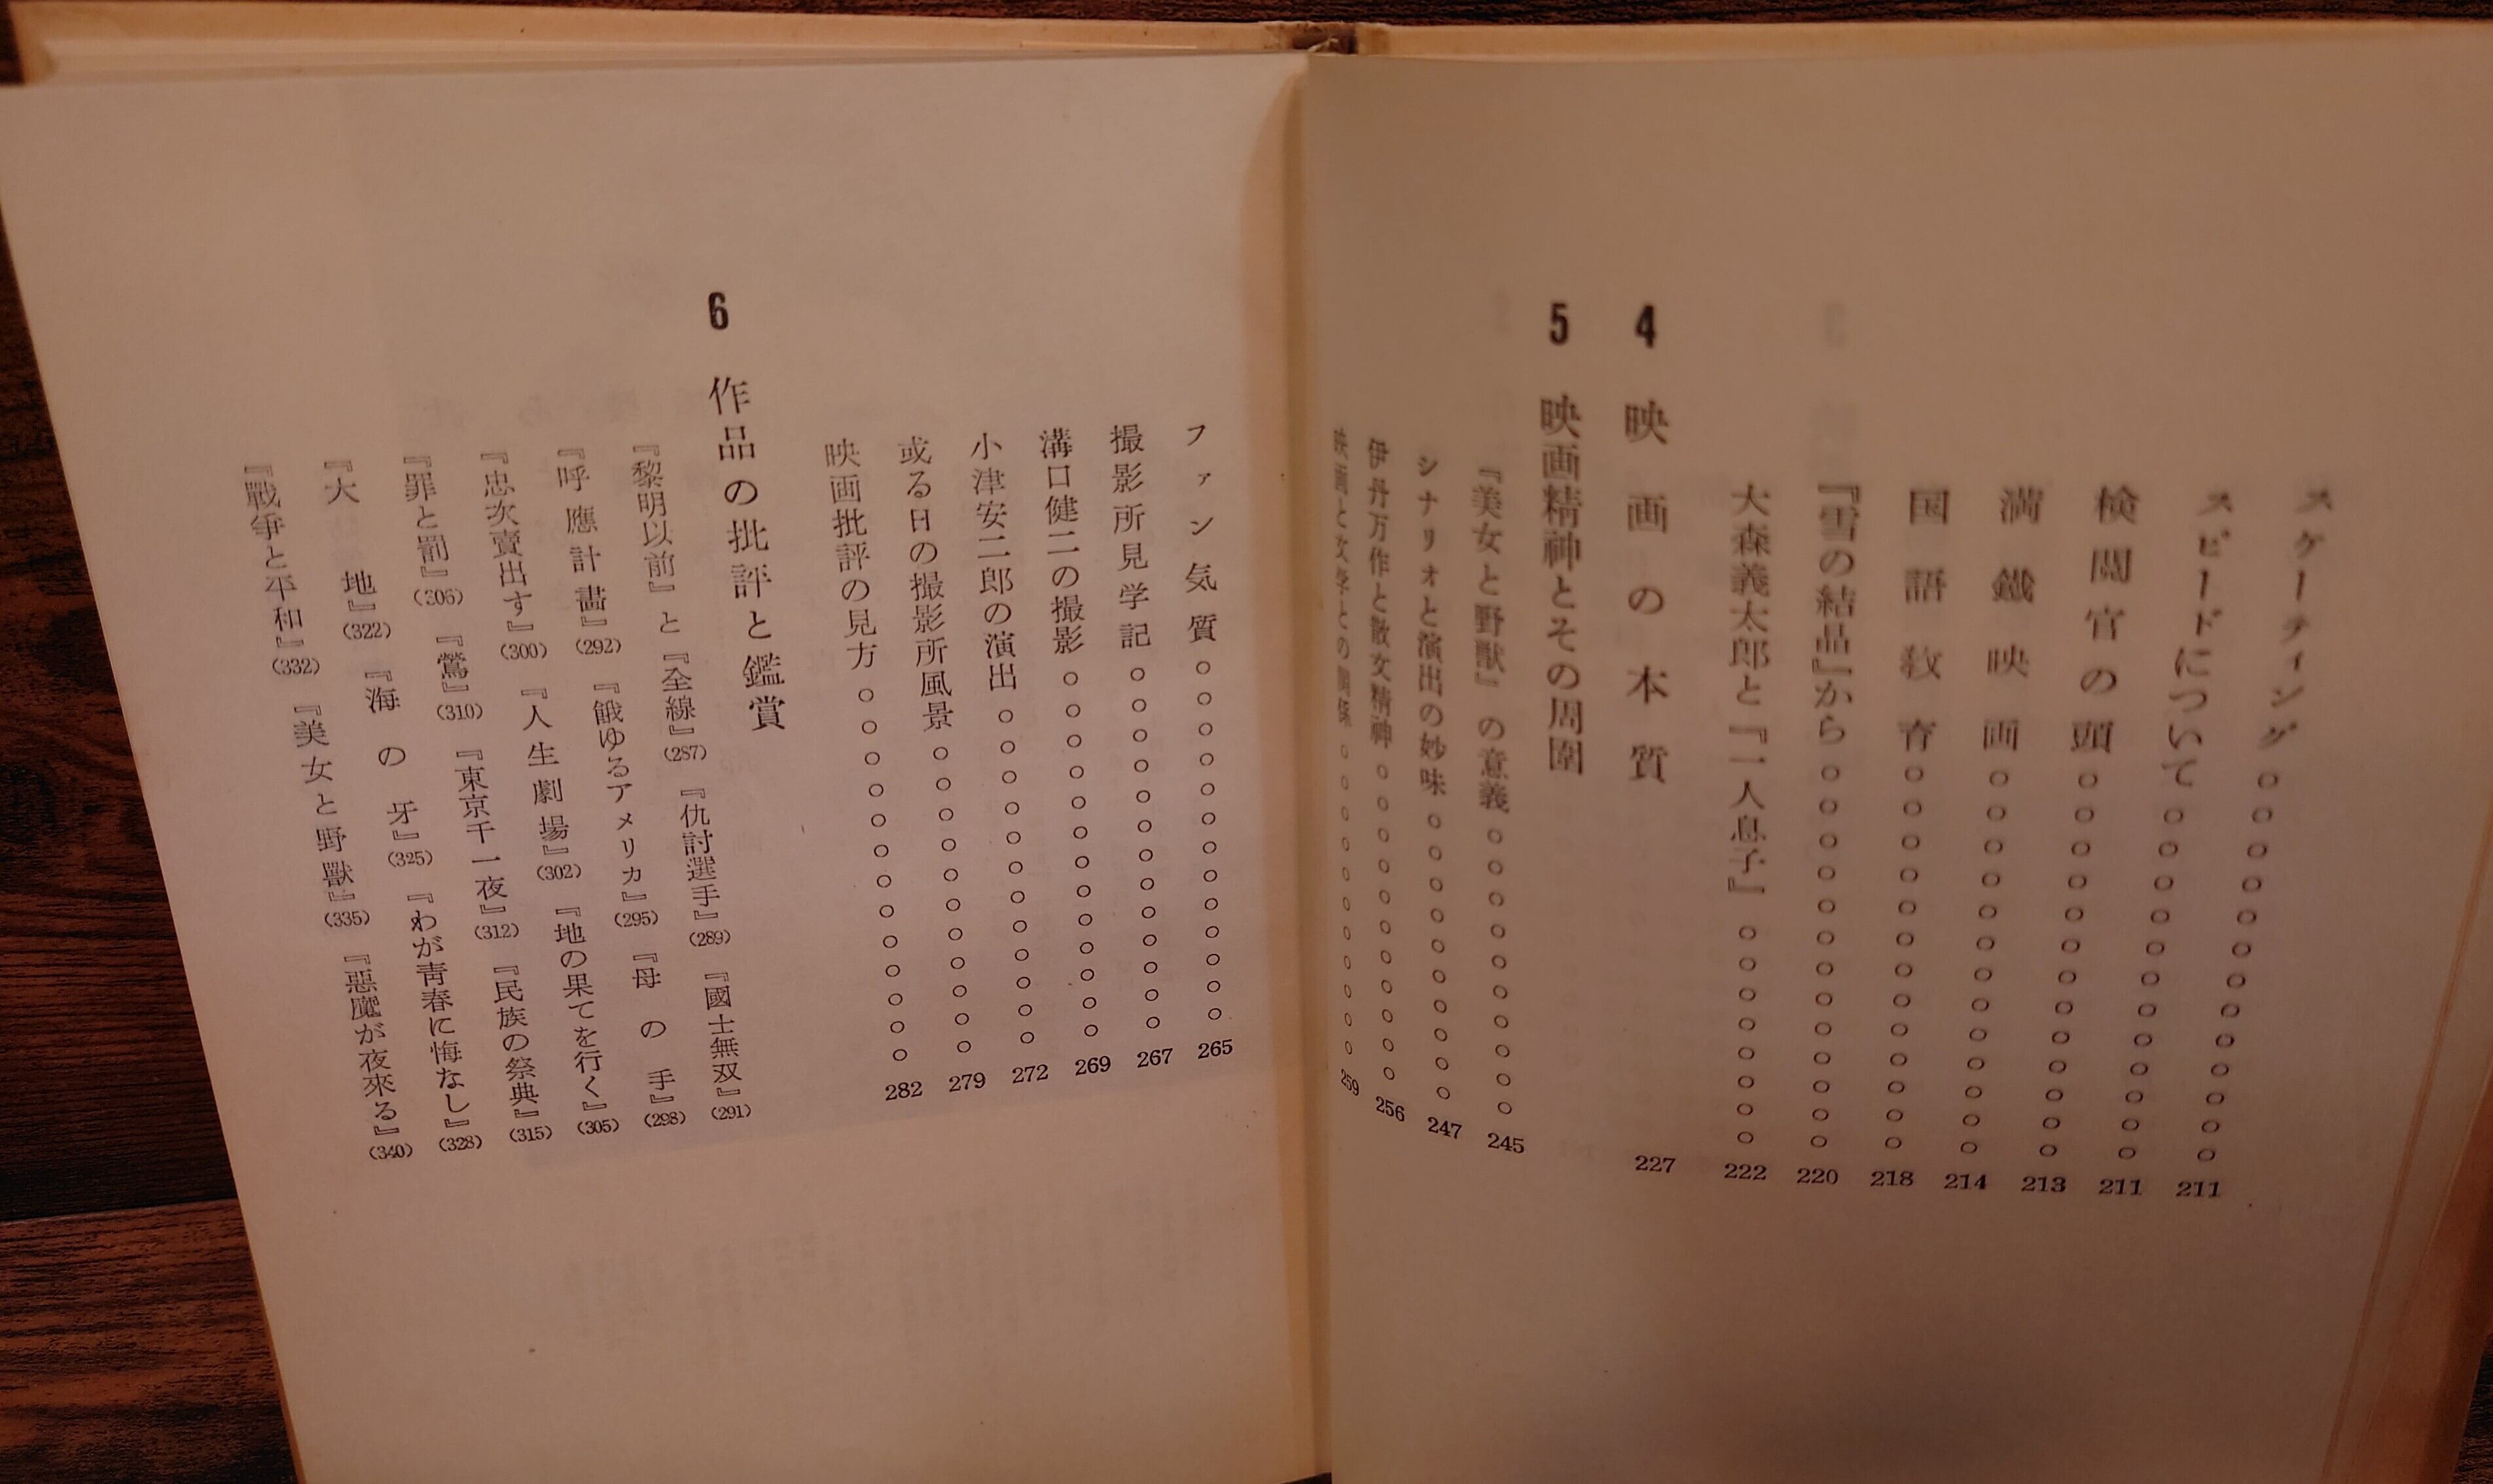 スケーティング 211
スピードについて 211
検閲官の頭 213
満鐵映画 214
国語敎育 218
『雪の結晶』から 220
大森義太郎と『一人息子』 222
4 映画の本質 227
5 映画精神とその周囲
『美女と野獣』の意義 245
シナリオと演出の妙味 247
伊丹万作と散文精神 256
映画と文学との関係 259
ファン気質 265
撮影所見学記 267
溝口健二の撮影 269
小津安二郎の演出 272
或る日の撮影所風景 279
映画批評の見方 282
6 作品の批評と鑑賞
『黎明以前』と『全線』(287) 『仇討選手』(289) 『國士無双』(291)
『呼應計畫』(292) 『餓ゆるアメリカ』(295) 『母の手』(298)
『忠次賣出す』(300) 『人生劇場』(302) 『地の果てを行く』(305)
『罪と罰』(306) 『鶯』(310) 『東京千一夜』(312) 『民族の祭典』(315)
『大地』(322) 『海の牙』(325) 『わが青春に悔なし』(328)
『戰爭と平和』(332) 『美女と野獸』(335) 『惡魔が夜來る』(340)